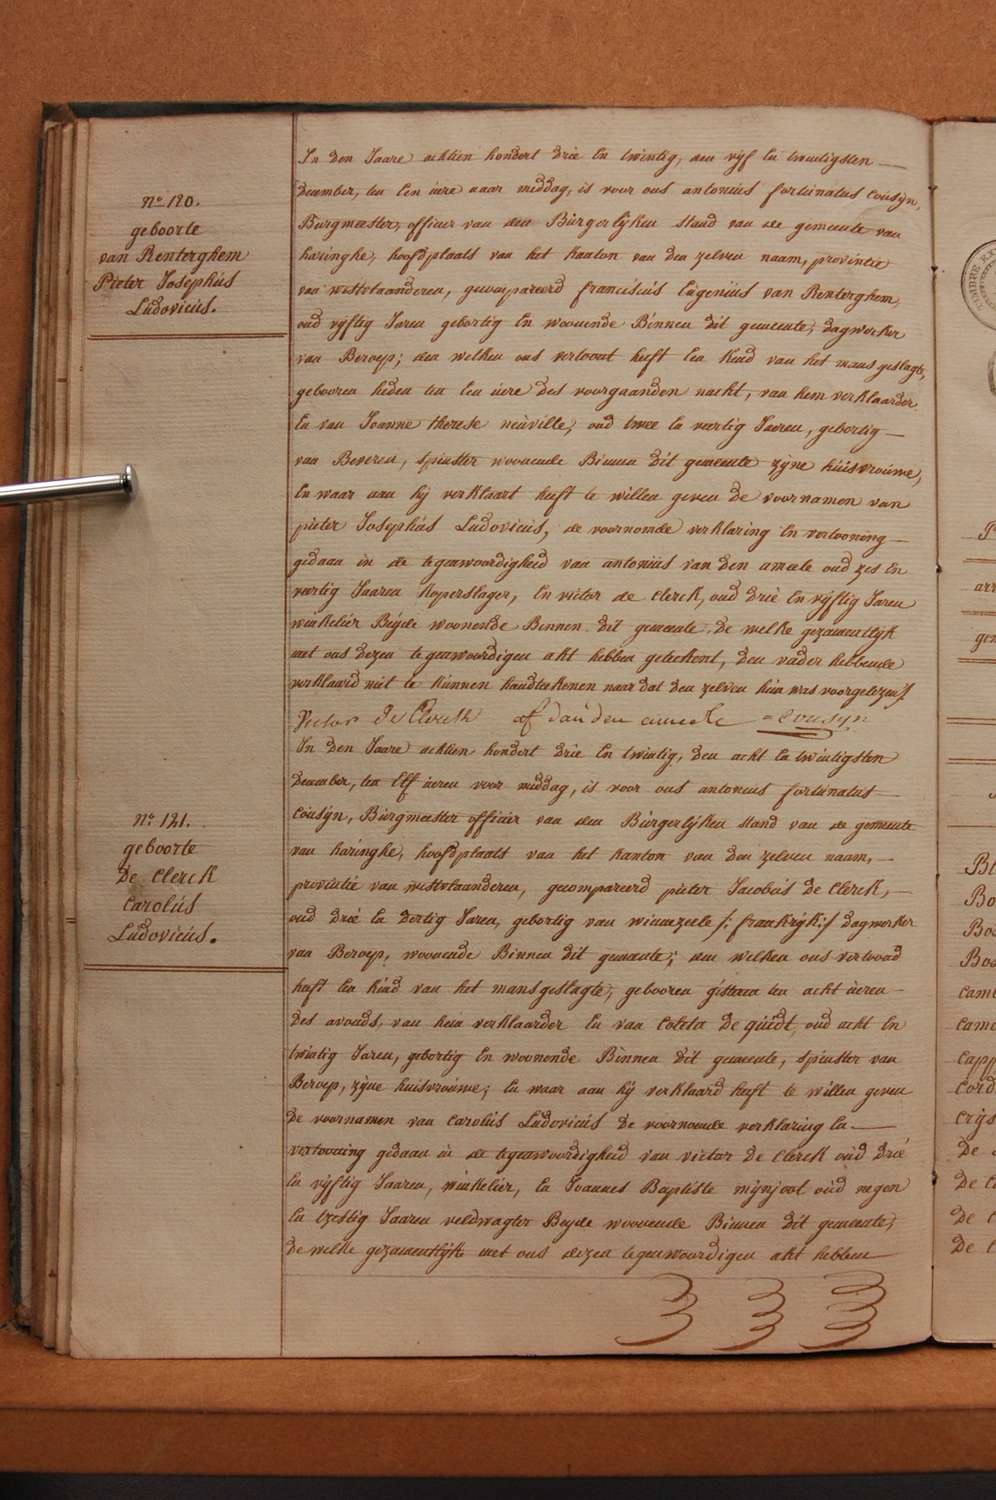 N.o 120.
geboorte
van Renterghem
Pieter Josephús
Lúdovicús.
In den Jaare achtien hondert drie en twintig, den vijf en twintigsten
december, ten een úere naar middag, is voor ons antonius fortúnatus Coúsyn,
Búrgmeester, officier van den Búrgerlijken stand van de gemeente van
haringhe, hoofdplaats van het kanton van den zelven naam, provintie
van westvlaanderen, gecompareerd franciscús Eúgeniús van Renterghem,
oud vijftig Jaren gebortig en woonende Binnen dit gemeente, dagwerker
van Beroep; den welken ons vertoont heeft een kind van het mans geslagte,
gebooren heden ten een úere des voorgaanden nacht, van hem verklaarder
en van Joanne therese neúville, oud twee en veertig Jaeren, gebortig
van Beveren, spinster woonende Binnen dit gemeente zijne húisvroúwe,
en waar aan hij verklaart heeft te willen geven de voornamen van
pieter Josephús Lúdovicús, de voornoemde verklaring en vertooning
gedaan in de tegenwoordigheid van antoniús van den ameele oud zes en
veertig Jaaren koperslager, en victor de Clerck, oud drie en vijftig Jaren
winkeliér Béyde woonende Binnen dit gemeente, de welke gezamentlijk
met ons dezen tegenwoordigen akt hebben geteekent, den vader hebbende
verklaard niet te kúnnen handteekenen naar dat den zelven hem was voorgelezen ƒ
Victor De Clerck af van den ameele = Cousyn
N.o 121.
geboorte
De Clerck
Carolús
Lúdovicús.
In den Jaare achtien hondert drie en twintig, den acht en twintigsten
december, ten elf úeren voor middag, is voor ons antonius fortúnatus
Coúsyn, Búrgmeester officier van den Búrgerlijken stand van de gemeente
van haringhe, hoofdplaats van het kanton van den zelven naam,
provintie van westvlaanderen, gecompareerd pieter Jacobús De Clerck,
oud drie en dertig Jaren, gebortig van winnezeele /: frankrijk:/ dagwerker
van Beroep, woonende Binnen dit gemeente; den welken ons vertoond
heeft een kind van het mansgeslagte, gebooren gisteren ten acht úeren
des avonds, van hem verklaarder en van Coleta De quidt, oud acht en
twintig Jaren, gebortig en woonende Binnen dit gemeente, spinster van
Beroep, zijne huisvroúwe; en waar aan hij verklaard heeft te willen geven
de voornamen van Carolús Lúdovicús de voornoemde verklaring en
vertooning gedaan in de tegenwoordigheid van victor De Clerck oúd drie
en vijftig Jaaren, winkeliér, en Joannes Baptiste mijnjoot oúd negen
en tzestig Jaaren veldwagter Beyde woonende Binnen dit gemeente,
de welke gezamentlijk met ons dezen tegenwoordigen akt hebben
TIMBRE EX
P
arr
gem
Bl
Bo
Bos
Bos
Camb
Came
Capp
Cord
Crijs
De
De C
De C
De C